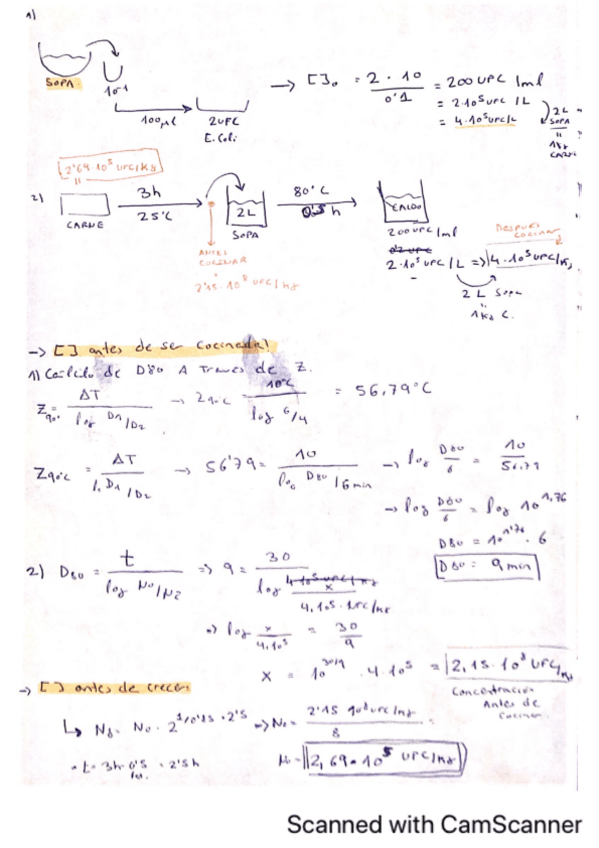 1)
SOPA
10-1
100µl
2UFC
E. Coli
→ [ ]₀ = 2 · 10 / 0'1 = 200 UFC /ml
= 2·10⁵ UFC /L
= 4·10⁵ UFC/L
2L
SOPA
=
1Kg
CARNE
2'69·10⁵ UFC/Kg
=
2)
CARNE
3h
25°C
2L
SOPA
80°C
0'5 h
CALDO
ANTES
COCINAR
2'15·10⁸ UFC/Kg
200 UFC /ml
2·10⁵ UFC /L => 4·10⁵ UFC/Kg
DESPUES
COCINAR
2 L Sopa
=
1Kg C.
-> [ ] antes de ser Cocinada)
1) Cálculo de D80 A Traves de Z.
Z90º = ΔT / log D1/D2 → Z90ºC = 10ºC / log 6/4 = 56,79°C
Z90ºC = ΔT / log D1/D2 → 56'79 = 10 / log D80 /6min → log D80/6 = 10/56,79
→ log D80/6 = log 10^1,76
D80 = 10^1'76 · 6
D80 = 9 min
2) D80 = t / log N0/N2 => 9 = 30 / log x / 4·10⁵ UFC/Kg
=> log x/4·10⁵ = 30/9
x = 10^30/9 · 4·10⁵ = 2,15·10⁸ UFC/Kg
Concentración
Antes de
Cocinar.
-> [ ] antes de crecer
N0 = 2'15
8
- t = 3h - 0'5 = 2'5h
N0 = 2,69·10⁵ UFC/Kg
Scanned with CamScanner